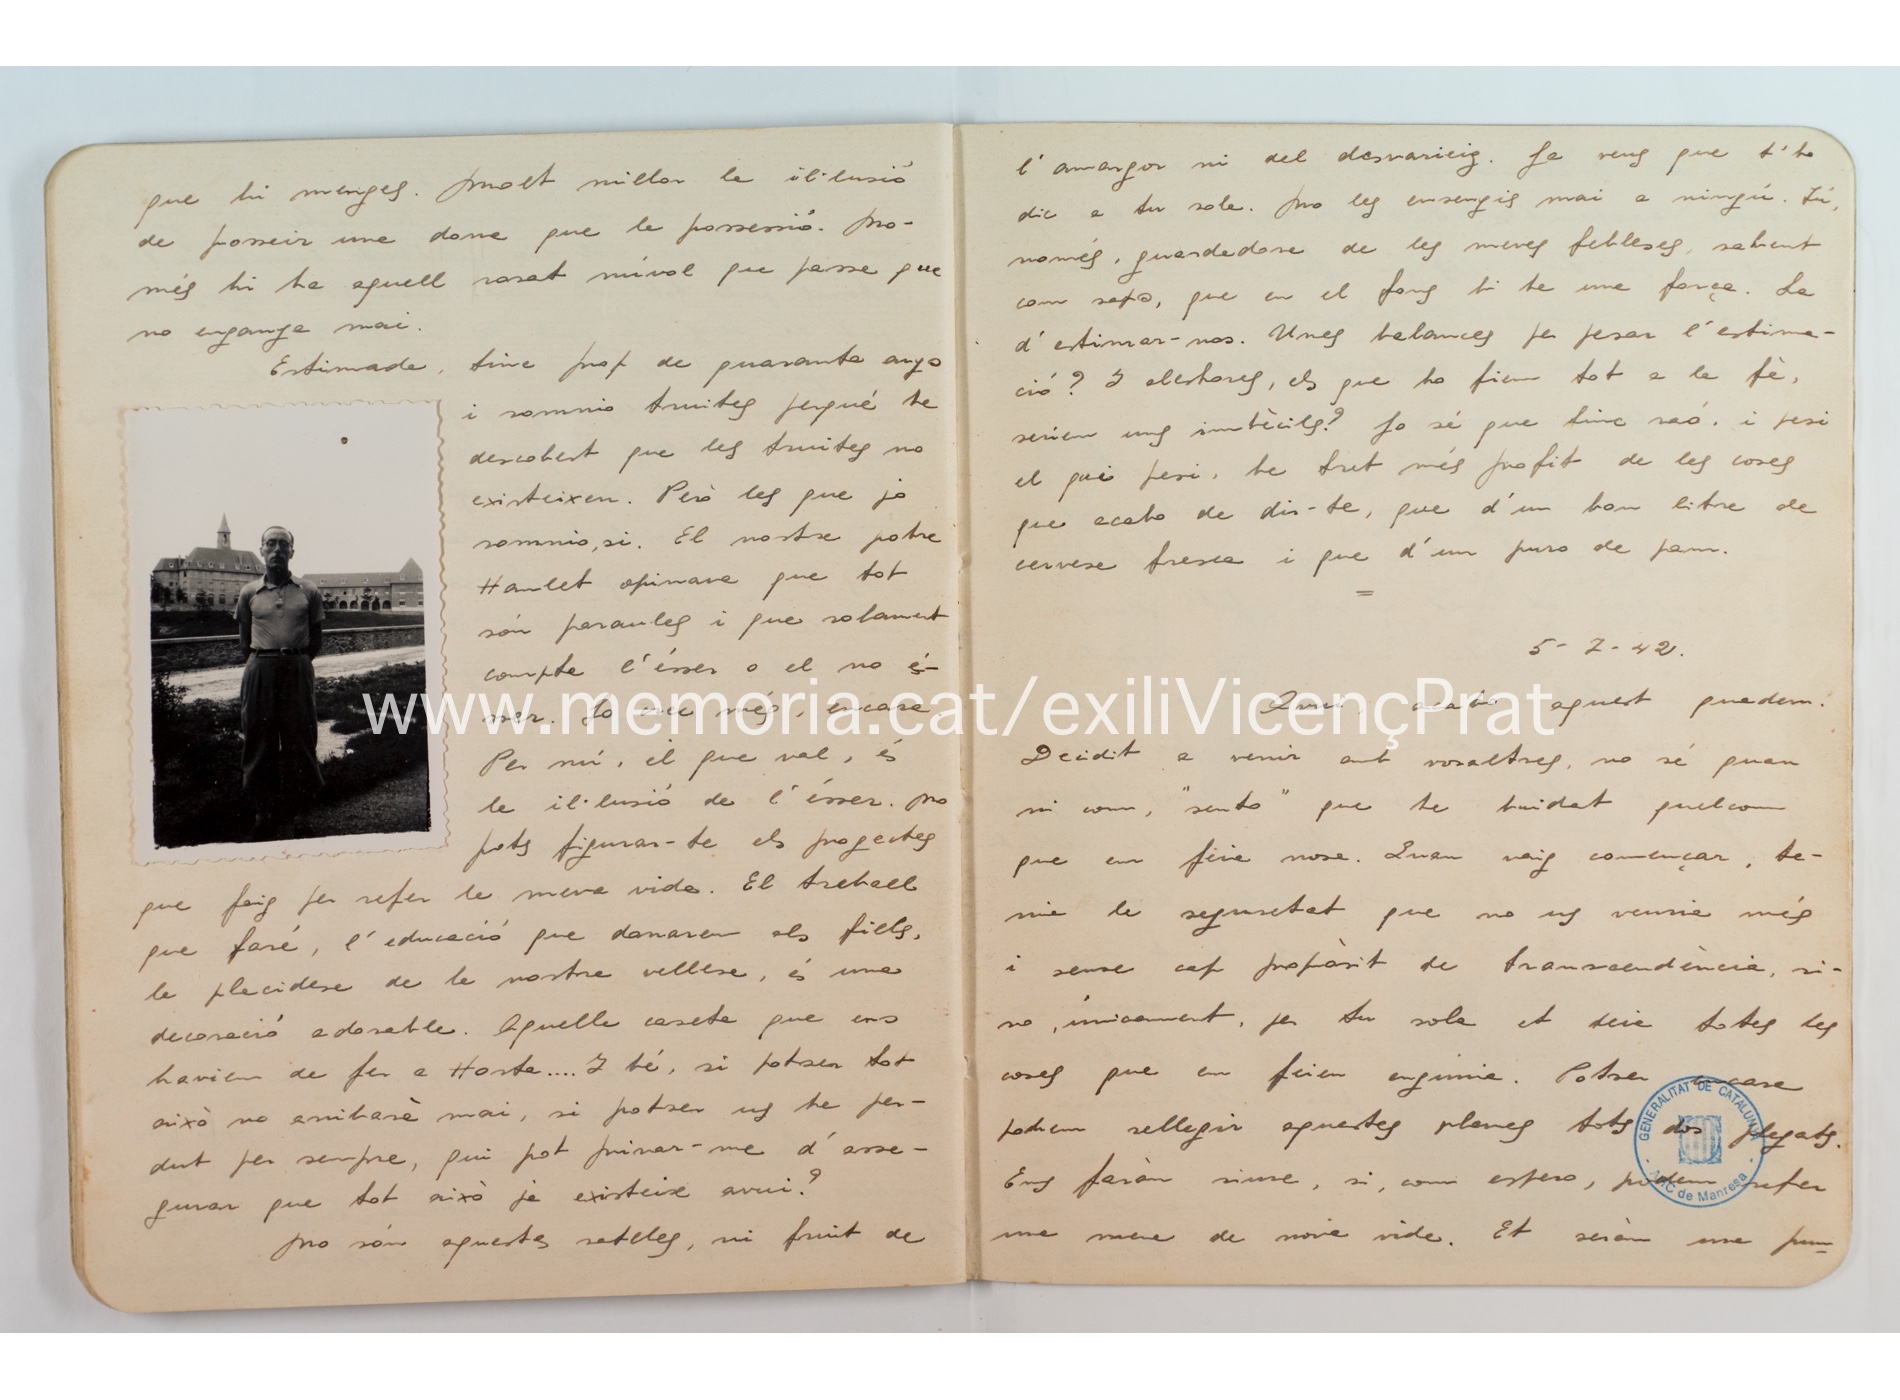 que hi menges. Molt millor la il·lusió
de posseir una dona que la possessió. No-
més hi ha aquell rosat núvol que passa que
no enganya mai.
Estimada, tinc prop de quaranta anys
i somnio truites perquè he
descobert que les truites no
existeixen. Però les que jo
somnio, si. El nostre pobre
Hamlet opinava que tot
són paraules i que solament
compta l'ésser o el no és-
ser. Jo crec més, encara
Per mi, el que val, és
la il·lusió de l'ésser. No
pots figurar-te els projectes
que faig per refer la meva vida. El treball
que faré, l'educació que donarem als fills,
la placidesa de la nostra vellesa, és una
decoració adorable. Aquella caseta que ens
haviem de fer a Horta.... I bé, si potser tot
això no arribarà mai, si potser us he per-
dut per sempre, qui pot privar-me d'asse-
gurar que tot això ja existeix avui?
No són aquestes ratlles, ni fruit de
l'amargor ni del desvarieig. Ja veus que t'ho
dic a tu sola. No les ensenyis mai a ningú. Tú,
només, guardadora de les meves febleses, sabent
com saps, que en el fons hi ha una força. La
d'estimar-nos. Unes balances per pesar l'estima-
ció? I aleshores, els que ho fiem tot a la fè,
seriem uns imbècils? Jo sé que tinc raó, i pesi
el qui pesi, he tret més profit de les coses
que acabo de dir-te, que d'un bon litre de
cervesa fresca i que d'un puro de pam.
5-7-42.
Avui, acabo aquest quadern.
Decidit a venir amb vosaltres, no sé quan
ni com, "sento" que he buidat quelcom
que em feia nosa. Quan vaig començar, te-
nia la seguretat que no us veuria més
i sense cap propòsit de transcendència, si-
no, únicament, per tu sola et deia totes les
coses que em feien engúnia. Potser encara
podrem rellegir aquestes planes tots dos plegats.
Ens faràn riure, si, com espero, podem refer
una mena de nova vida. Et seràn una pun-
www.memoria.cat/exiliVicençPrat
GENERALITAT DE CATALUNYA
de Manresa